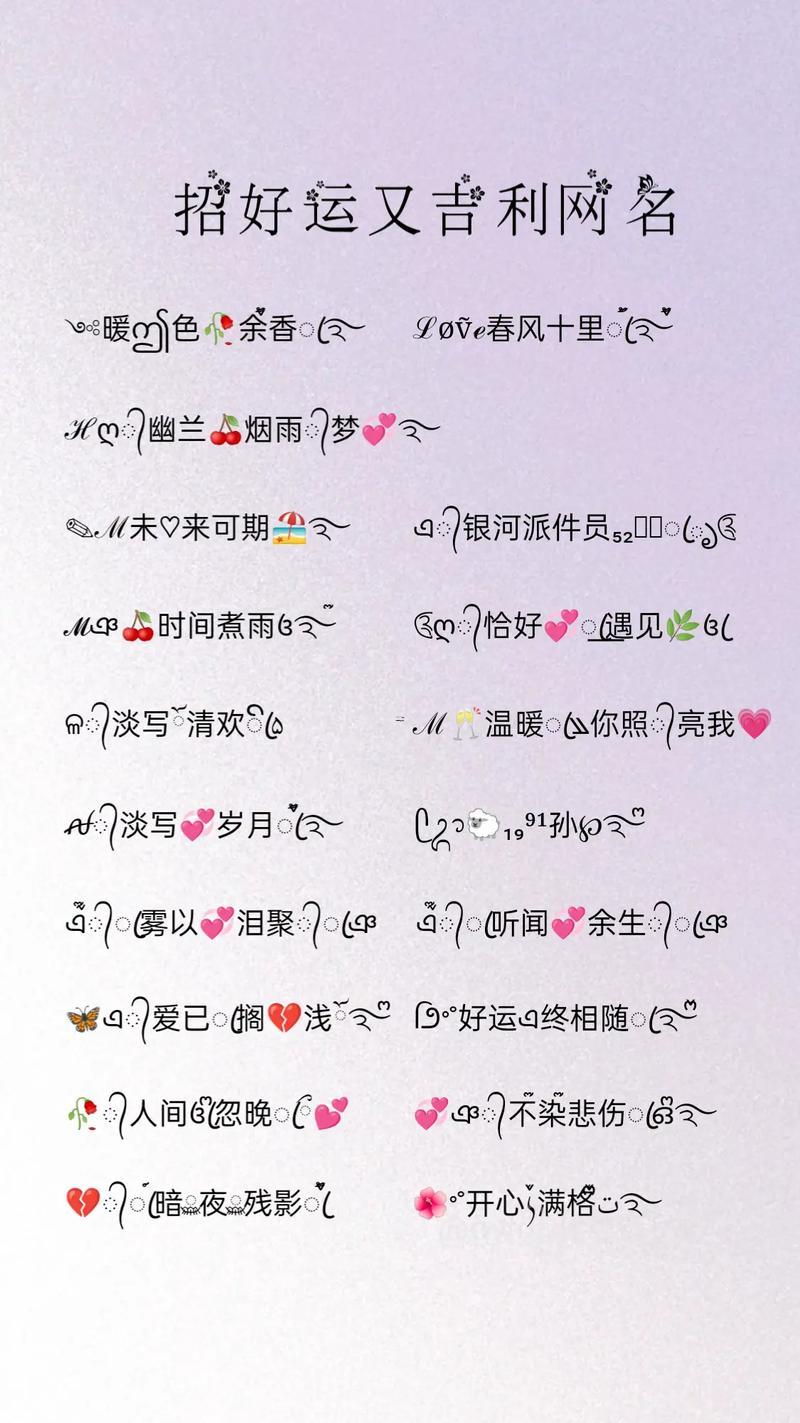 招好运又吉利网名
༄༅暖ဤ色🥀余香ꦿ(ঢ়࿐ ℒØṽℯ春风十里ꦿ(࿐
ℋღ᭄幽兰🍒烟雨᭄梦💞࿐
✎ℳ未♡来可期🏖࿐ এ᭄银河派件员₅₂
ℳঞ🍒时间煮雨ও࿐ ღ᭄恰好💞遇见🌿ও
က᭄淡写清欢 ⁼ℳ🥂温暖你照᭄亮我💗
᭄淡写💞岁月࿐ 🐑₁₉⁹¹孙℘࿐ྂ
এ᭄雾以💞泪聚᭄ঞ এ᭄听闻💞余生᭄ঞ
🦋এ᭄爱已搁💔浅࿐ °好运এ终相随࿐
🥀᭄人间ও忽晚💕 💞ঞ᭄不染悲伤ও࿐
💔᭄暗夜残影 🌺°开心满格ت࿐